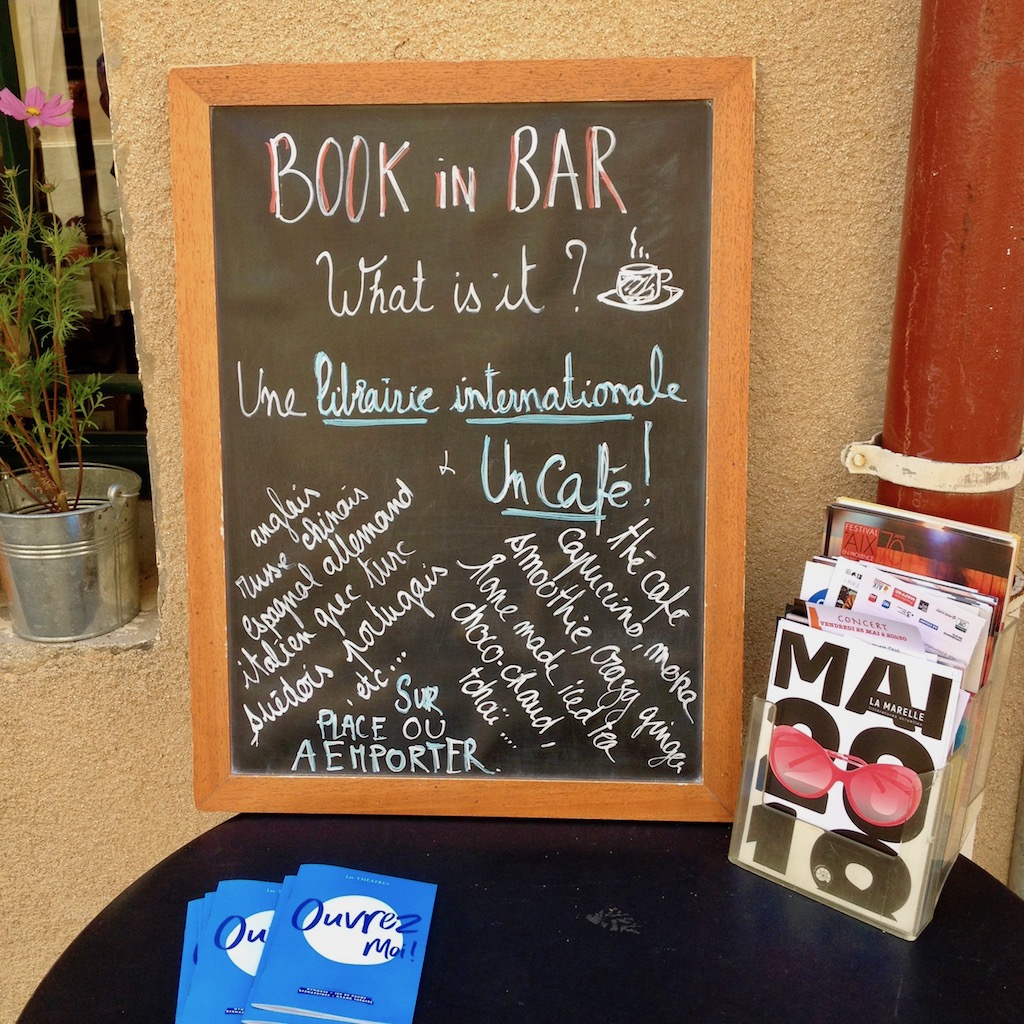 BOOK in BAR
What is it ?
Une librairie internationale
& Un Café !
anglais
russe chinois
espagnol allemand
italien grec turc
suédois portugais
etc...
thé café
capuccino, moka
smoothie, crazy ginger
Home made iced tea
choco-chaud,
tchaï....
SUR
PLACE OU
A EMPORTER.
FESTIVAL
AIX
EN PROVENCE
70
CONCERT
VENDREDI 25 MAI à 20h30
MAI
LA MARELLE
2018
Les THÉÂTRES
Ouvrez
Moi !
Ou